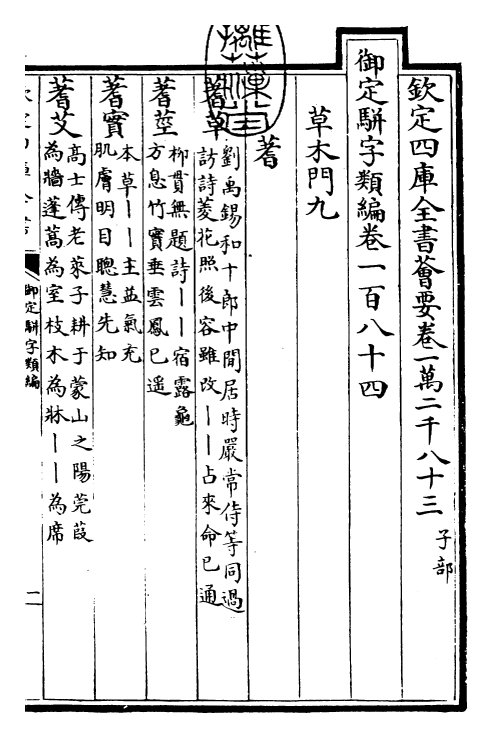 欽定四庫全書薈要卷一萬二千八十三 子部
御定駢字類編卷一百八十四
草木門九
蓍
蓍草 劉禹錫和十郎中閒居時嚴常侍等同過
訪詩菱花照後容雖改丨丨占來命已通
蓍莖 栁貫無題詩丨丨宿露龜
方息竹實垂雲鳳已遥
蓍實 本草丨丨主益氣充
肌膚明目聰慧先知
蓍艾 高士傳老萊子耕于蒙山之陽莞葭
為牆蓬蒿為室枝木為牀丨丨為席
御定駢字類編